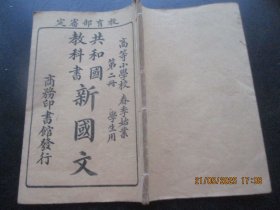 教育部審定
高等小學校 春季始業
第二冊 學生用
共和國
教科書
新國文
商務印書館發行